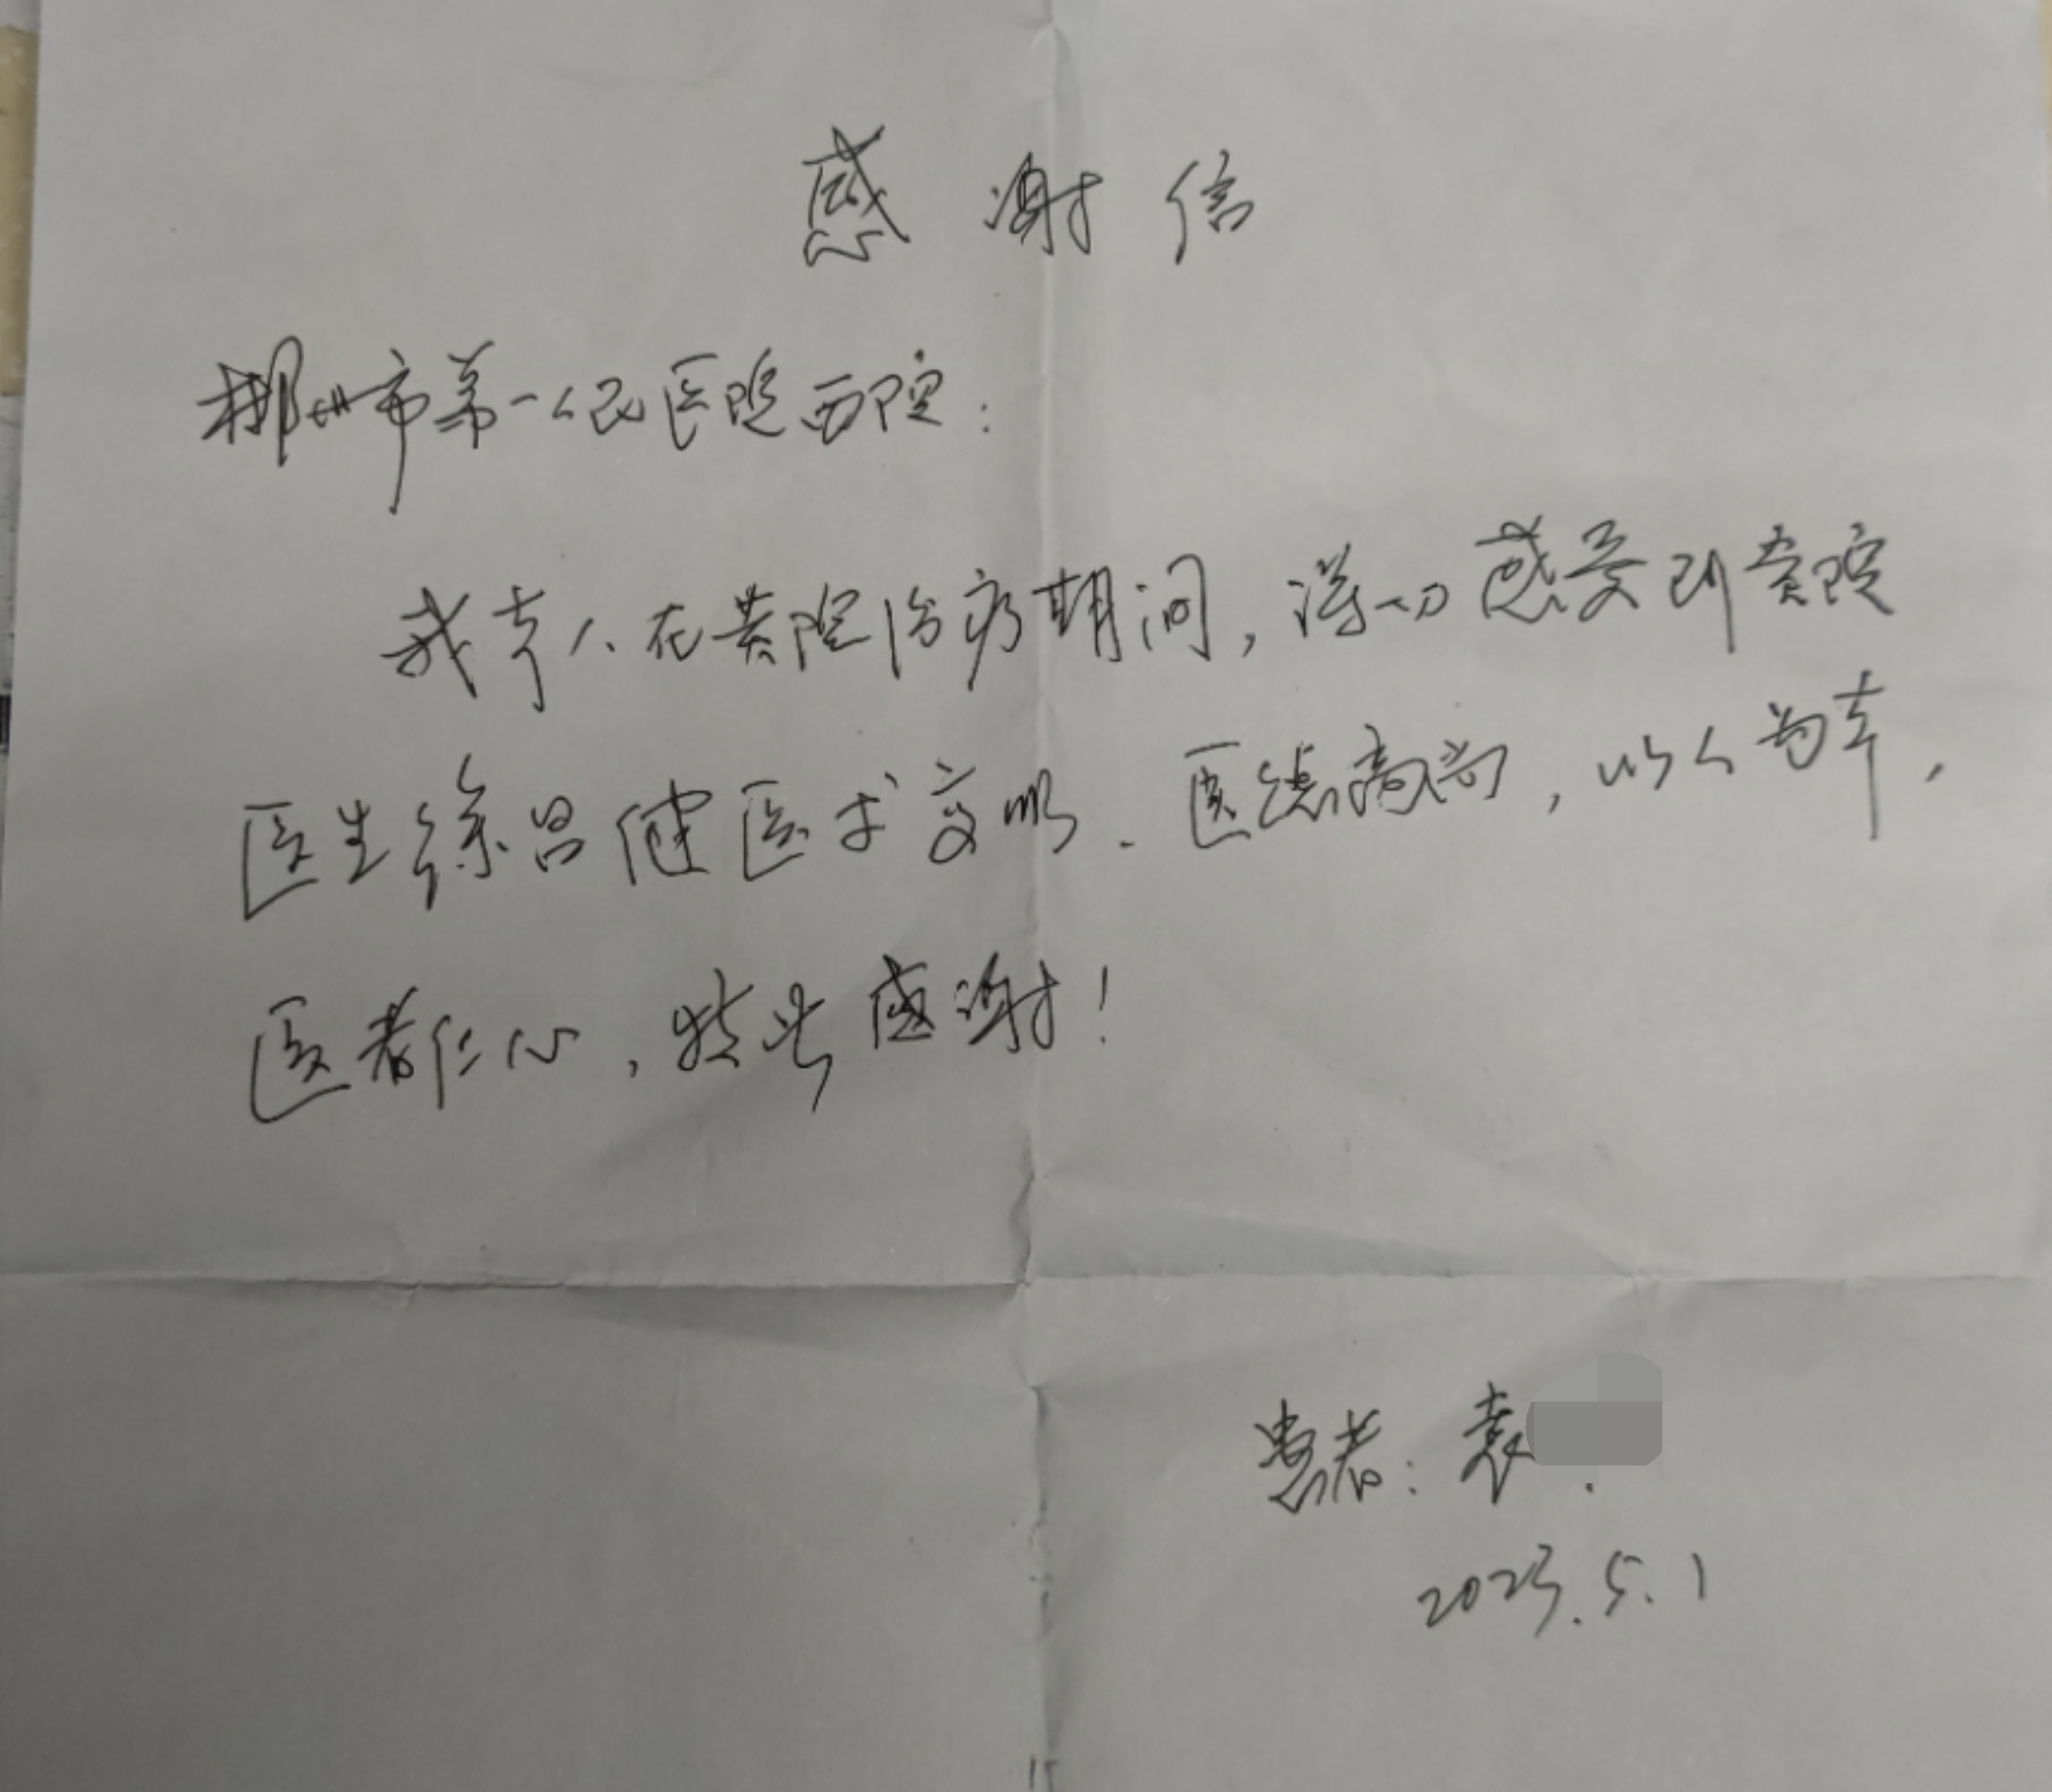 感谢信
郴州市第一人民医院西院:
我本人在贵院治疗期间,深切感受到贵院
医生徐昌健医术高明、医德高尚,以人为本,
医者仁心,特此感谢!
患者:袁
2023.5.1